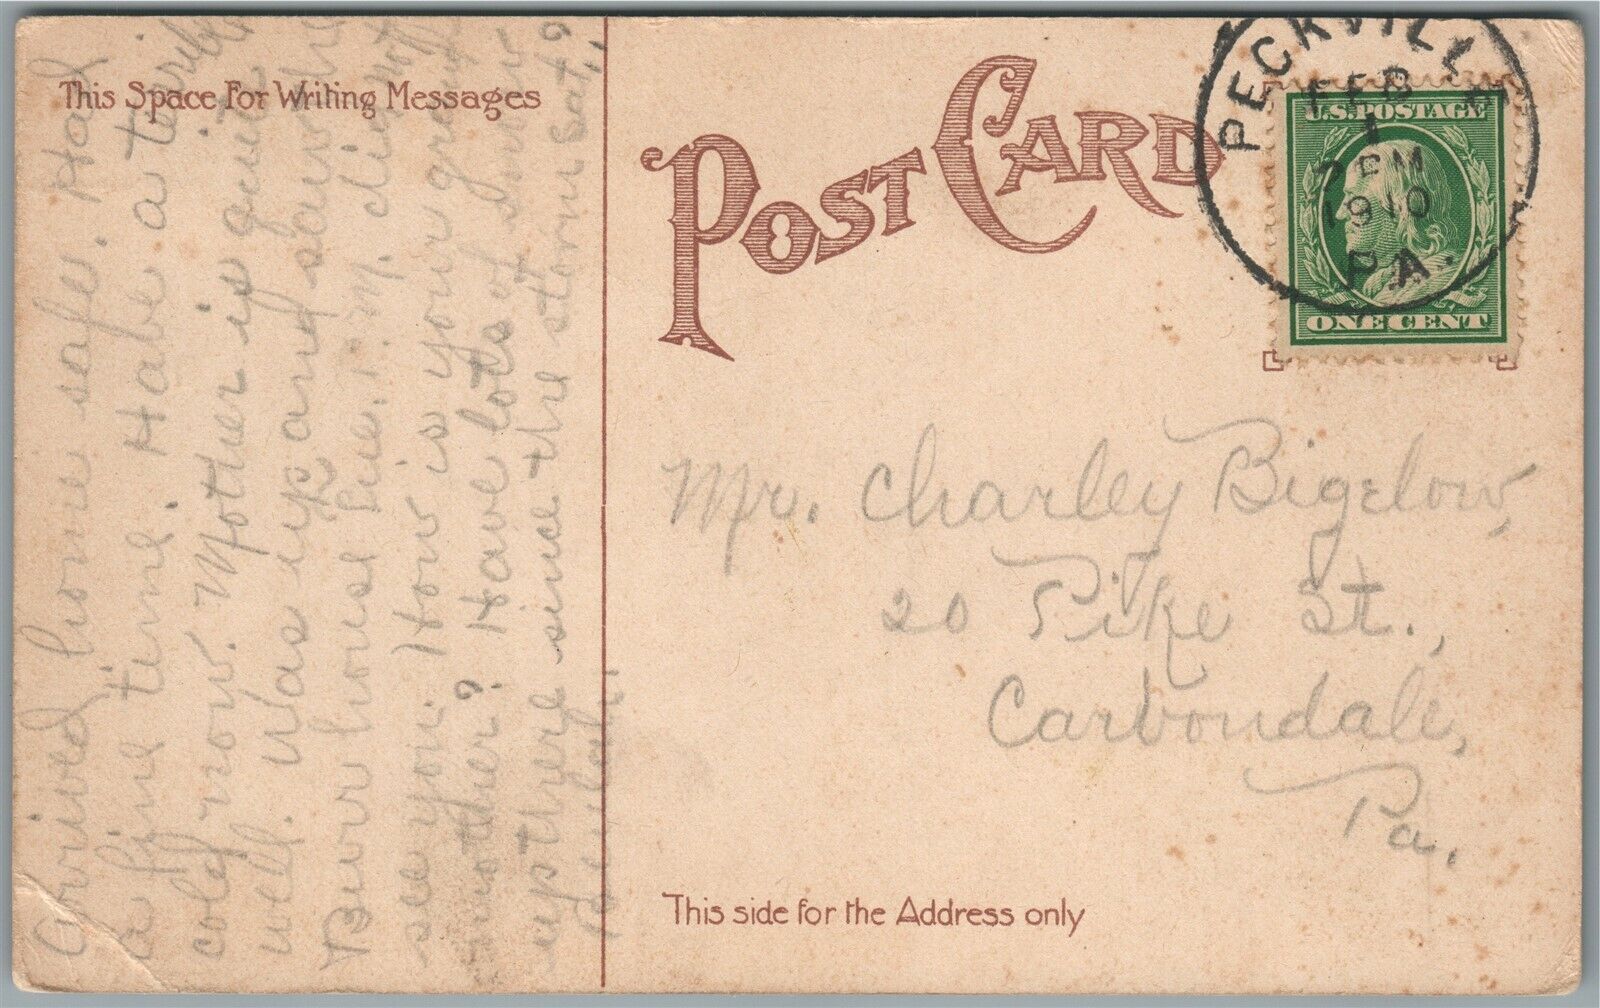 This Space For Writing Messages
POST CARD
PECKVILLE
FEB
1
PM
1910
PA.
U.S.POSTAGE
ONE CENT
Arrived home safe. Had
a fine time. Have a terible
cold now. Mother is quite
well. Was up and saw the
Burr house Sue. I'm did not
see you. How is your grand
mother? Have lots of snow
up there since the storm Sat.?
Mr. Charley Bigelow,
20 Pike St.,
Carbondale,
Pa.
This side for the Address only